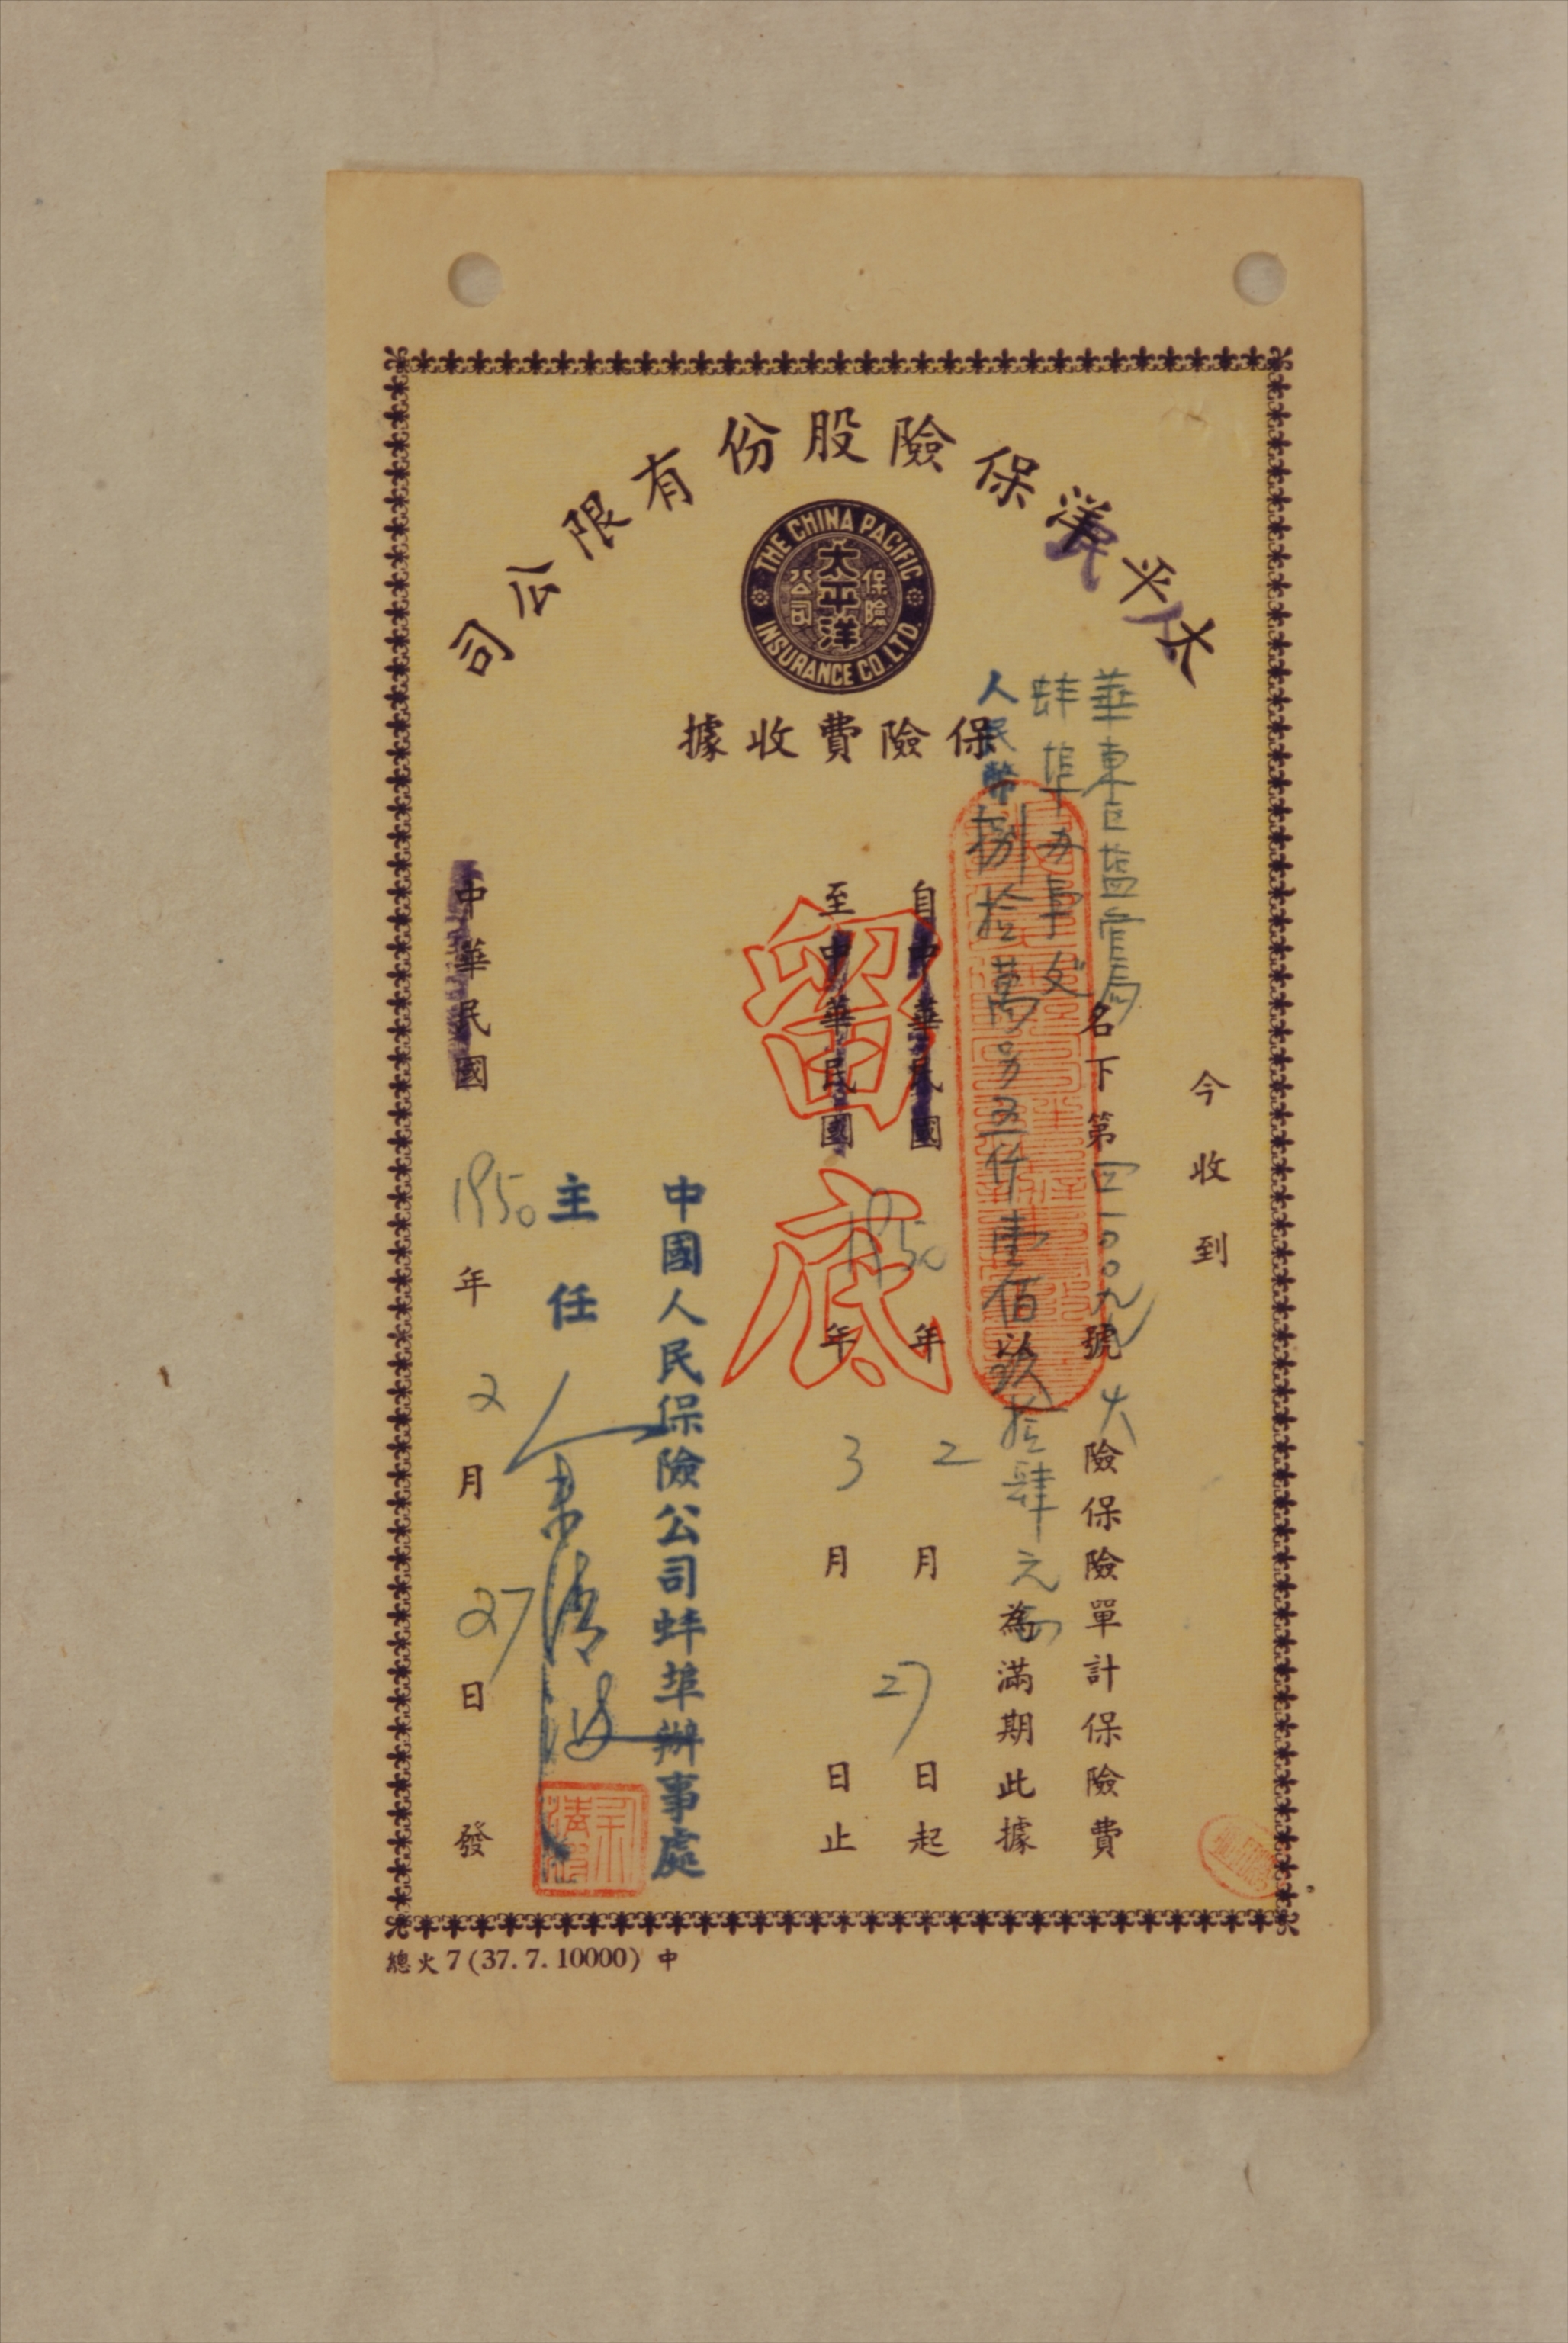 太平洋保險股份有限公司
THE CHINA PACIFIC INSURANCE CO. LTD.
太平洋
保險公司
保險費收據
今收到
華東區鹽管局
蚌埠办事处
名下第四一〇〇九號火險保險單計保險費
人民幣捌拾萬〇另五仟壹佰玖拾肆元
為滿期此據
自中華民國1950年2月27日起
至中華民國年3月日止
留底
中國人民保險公司蚌埠辦事處
主任
中華民國1950年2月27日發
總火7(37.7.10000)中